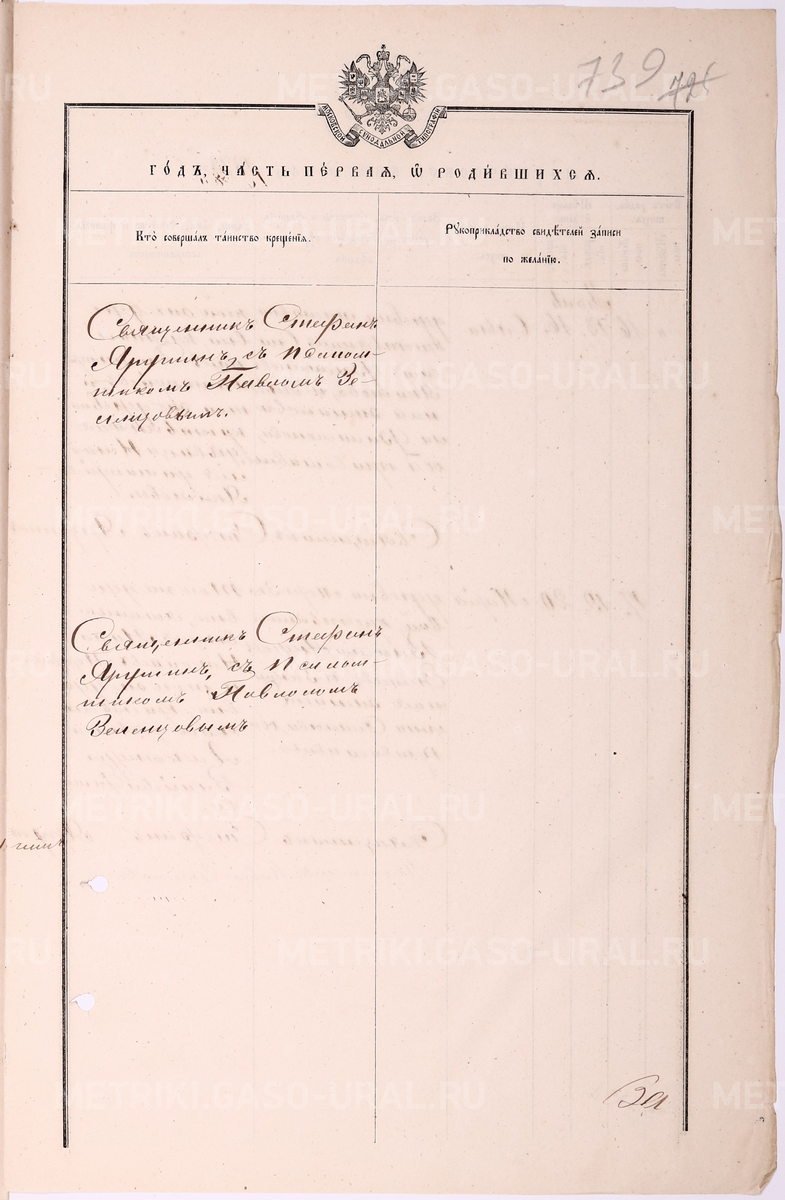 739
725
МОСКОВСКОЙ СИНОДАЛЬНОЙ ТИПОГРАФІИ
ГО́ДЪ, ЧА́СТЬ ПЕ́РВАЯ, Ѡ РОДИ́ВШИХСЯ.
Кто̀ соверша́лъ та́инство креще́нїѧ.
Рꙋкоприкла́дство свидѣ́телей за́писи
по жела́нїю.
Священникъ Стефанъ
Ярушинъ, съ псалом-
щикомъ Павломъ Зе-
ленцовымъ.
Священникъ Стефанъ
Ярушинъ, съ псалом-
щикомъ Павломъ
Зеленцовымъ
За
METRIKI.GASO-URAL.RU